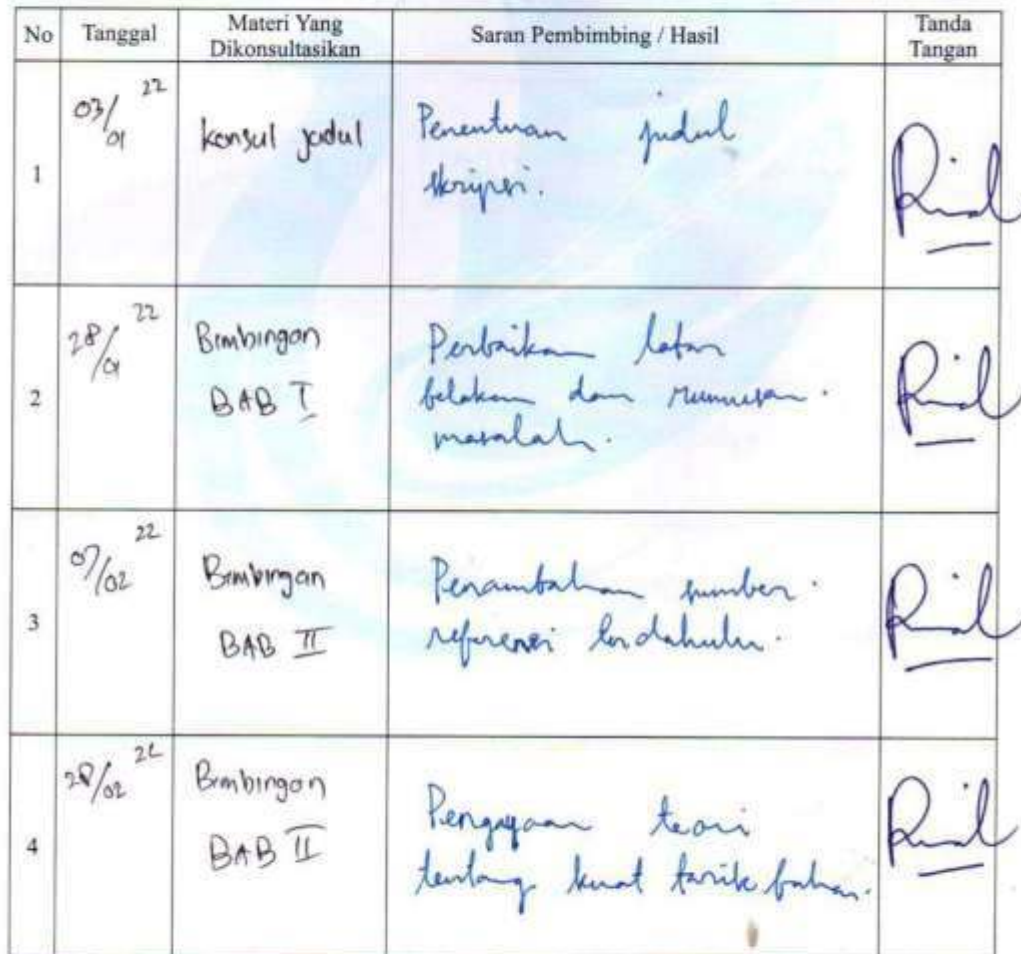 No Tanggal Materi Yang Dikonsultasikan Saran Pembimbing / Hasil Tanda Tangan
1 03/01 22 konsul judul Penentuan judul
skripsi.
2 28/01 22 Bimbingan Perbaikan latar
BAB I belakang dan rumusan
masalah.
3 07/02 22 Bimbingan Penambahan sumber
BAB II referensi terdahulu.
4 28/02 22 Bimbingan Pengayaan teori
BAB II tentang kuat tarik bahan.